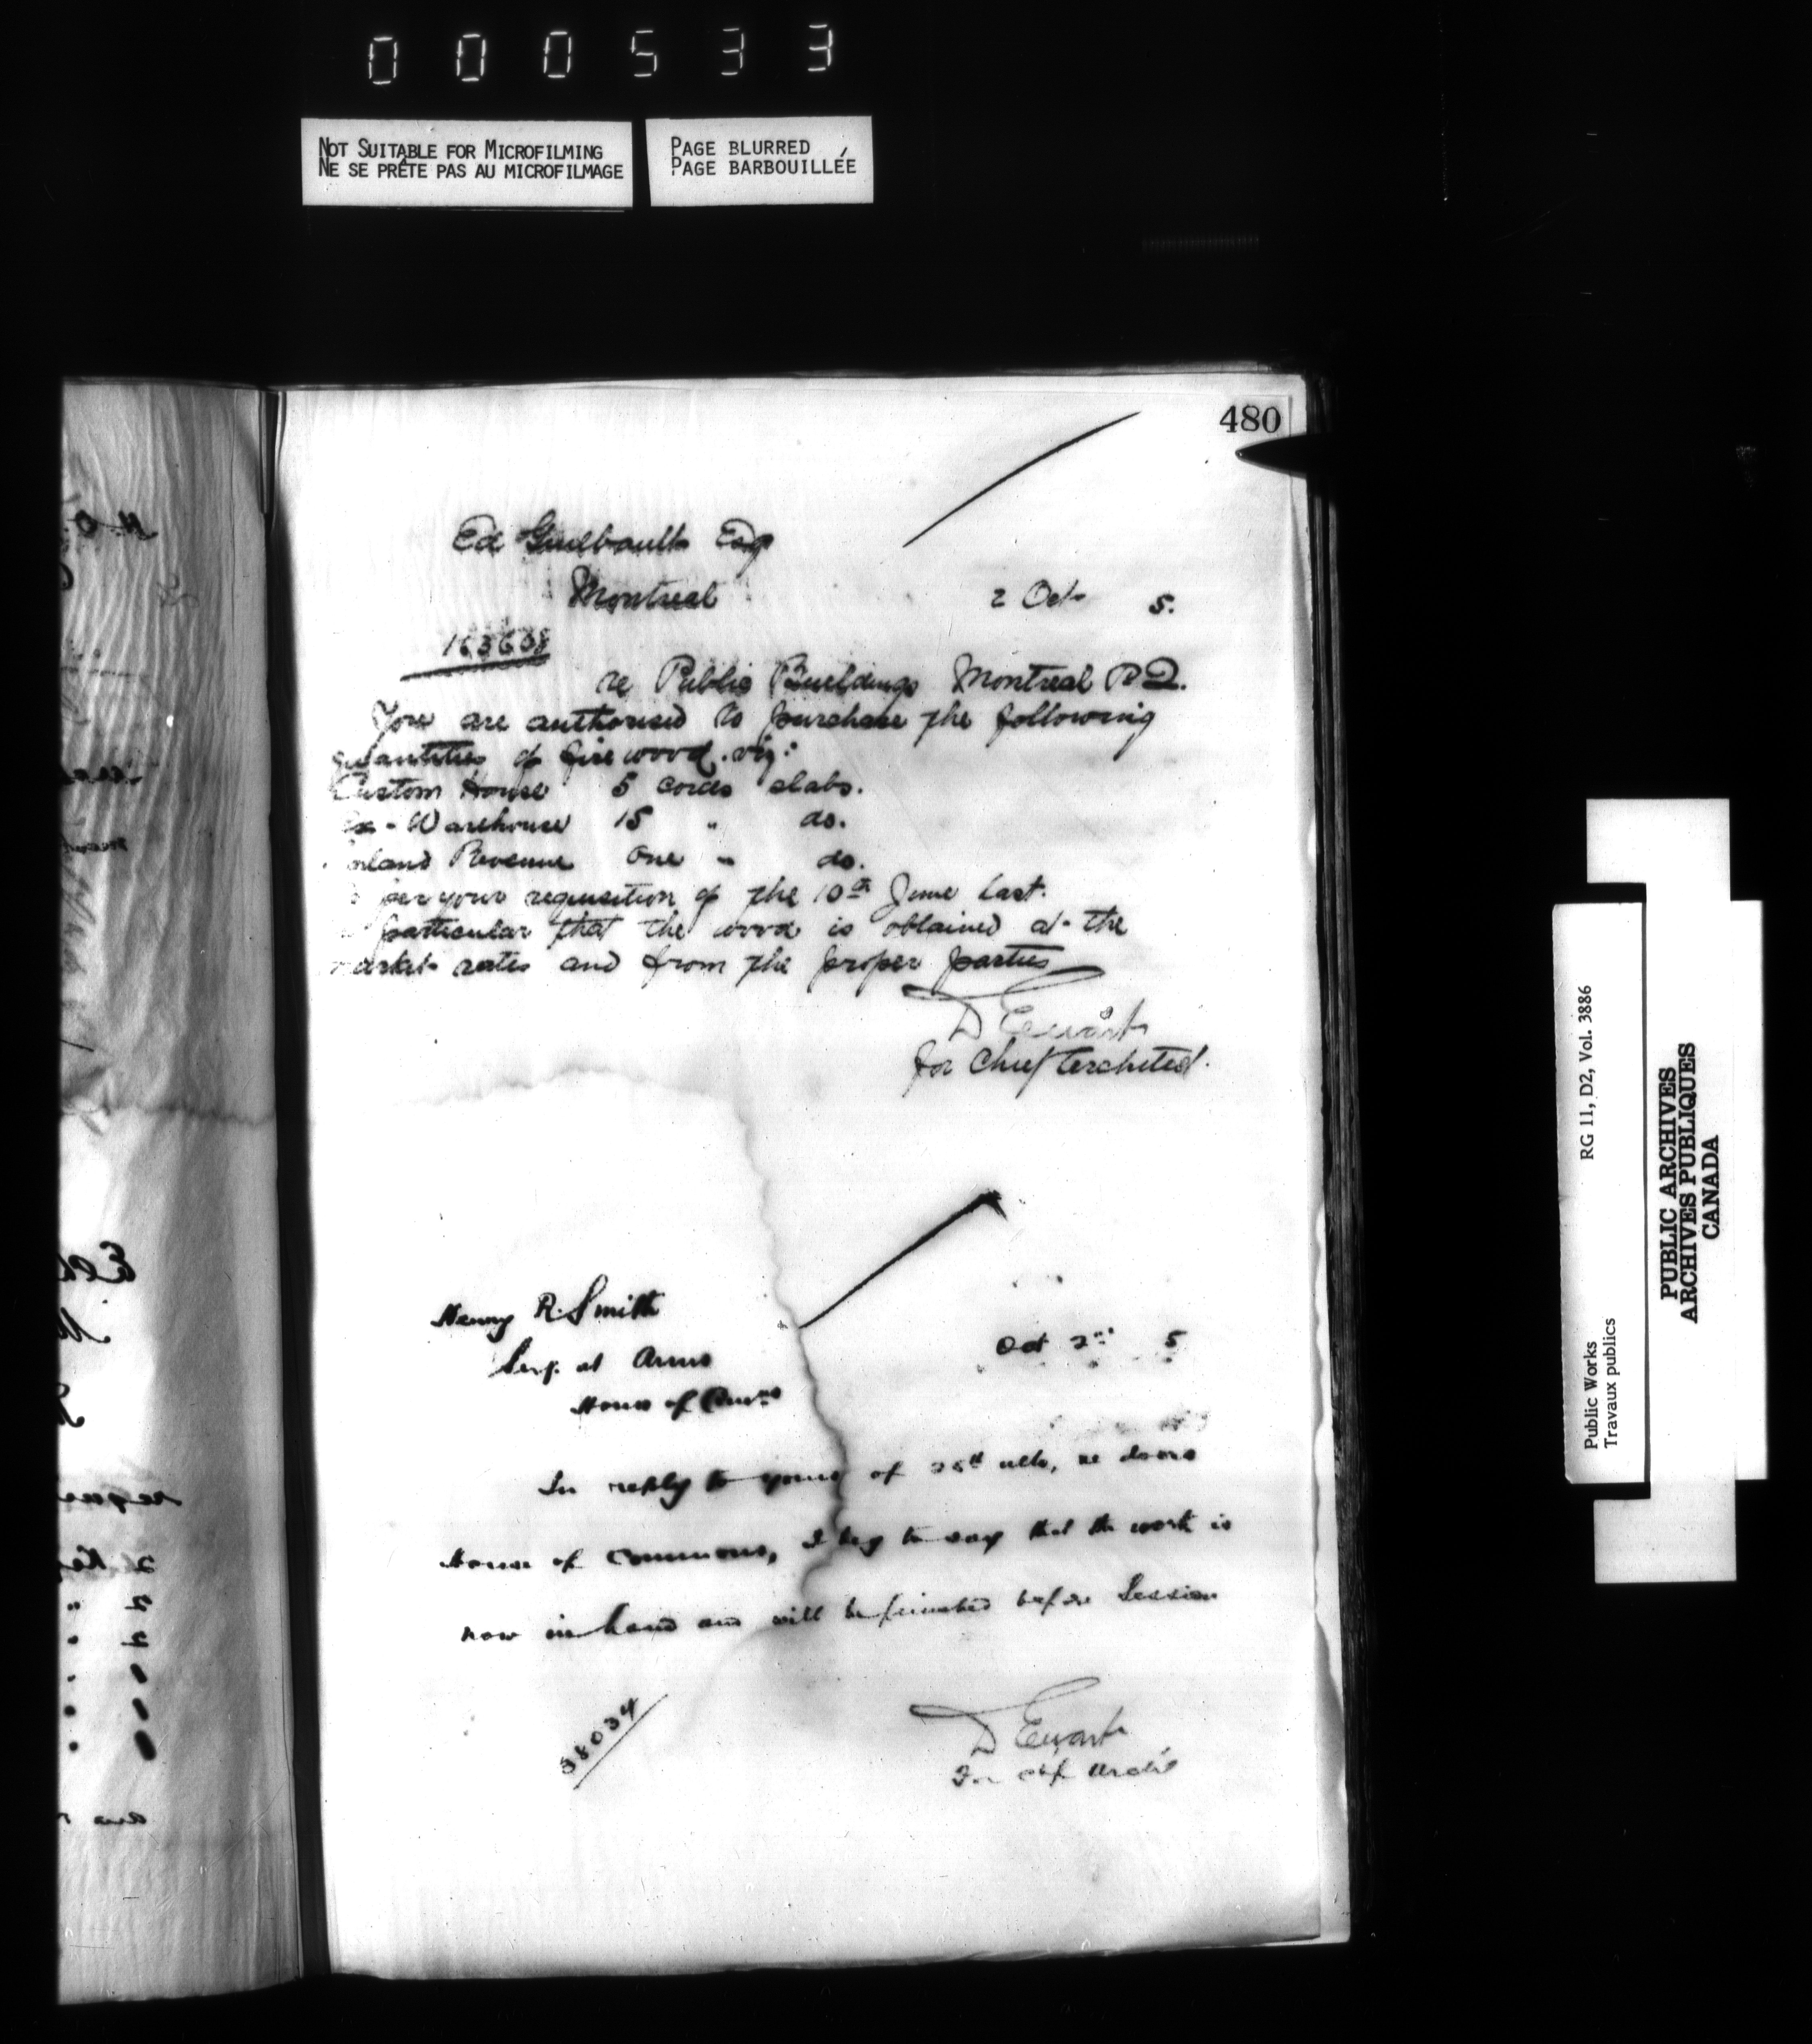 000533
NOT SUITABLE FOR MICROFILMING
NE SE PRÊTE PAS AU MICROFILMAGE
PAGE BLURRED
PAGE BARBOUILLÉE
480
Ed Guilbault Esq
Montreal
2 Oct 5.
163608
re Public Buildings Montreal P.Q.
You are authorised to purchase the following
quantities of fire wood. viz:
Custom House 5 cords slabs.
Ex-Warehouse 15 " do.
Inland Revenue One " do.
per your requisition of the 10th June last.
particular that the wood is obtained at the
market rates and from the proper parties
D Ewart
for Chief Architect.
Henry R. Smith
Serj. at Arms
House of Comns
Oct 2nd 5
In reply to yours of 25th ulto, re doors
House of Commons, I beg to say that the work is
now in hand and will be finished before Session
38034
D Ewart
For Chf Archt
RG 11, D2, Vol. 3886
Public Works
Travaux publics
PUBLIC ARCHIVES
ARCHIVES PUBLIQUES
CANADA